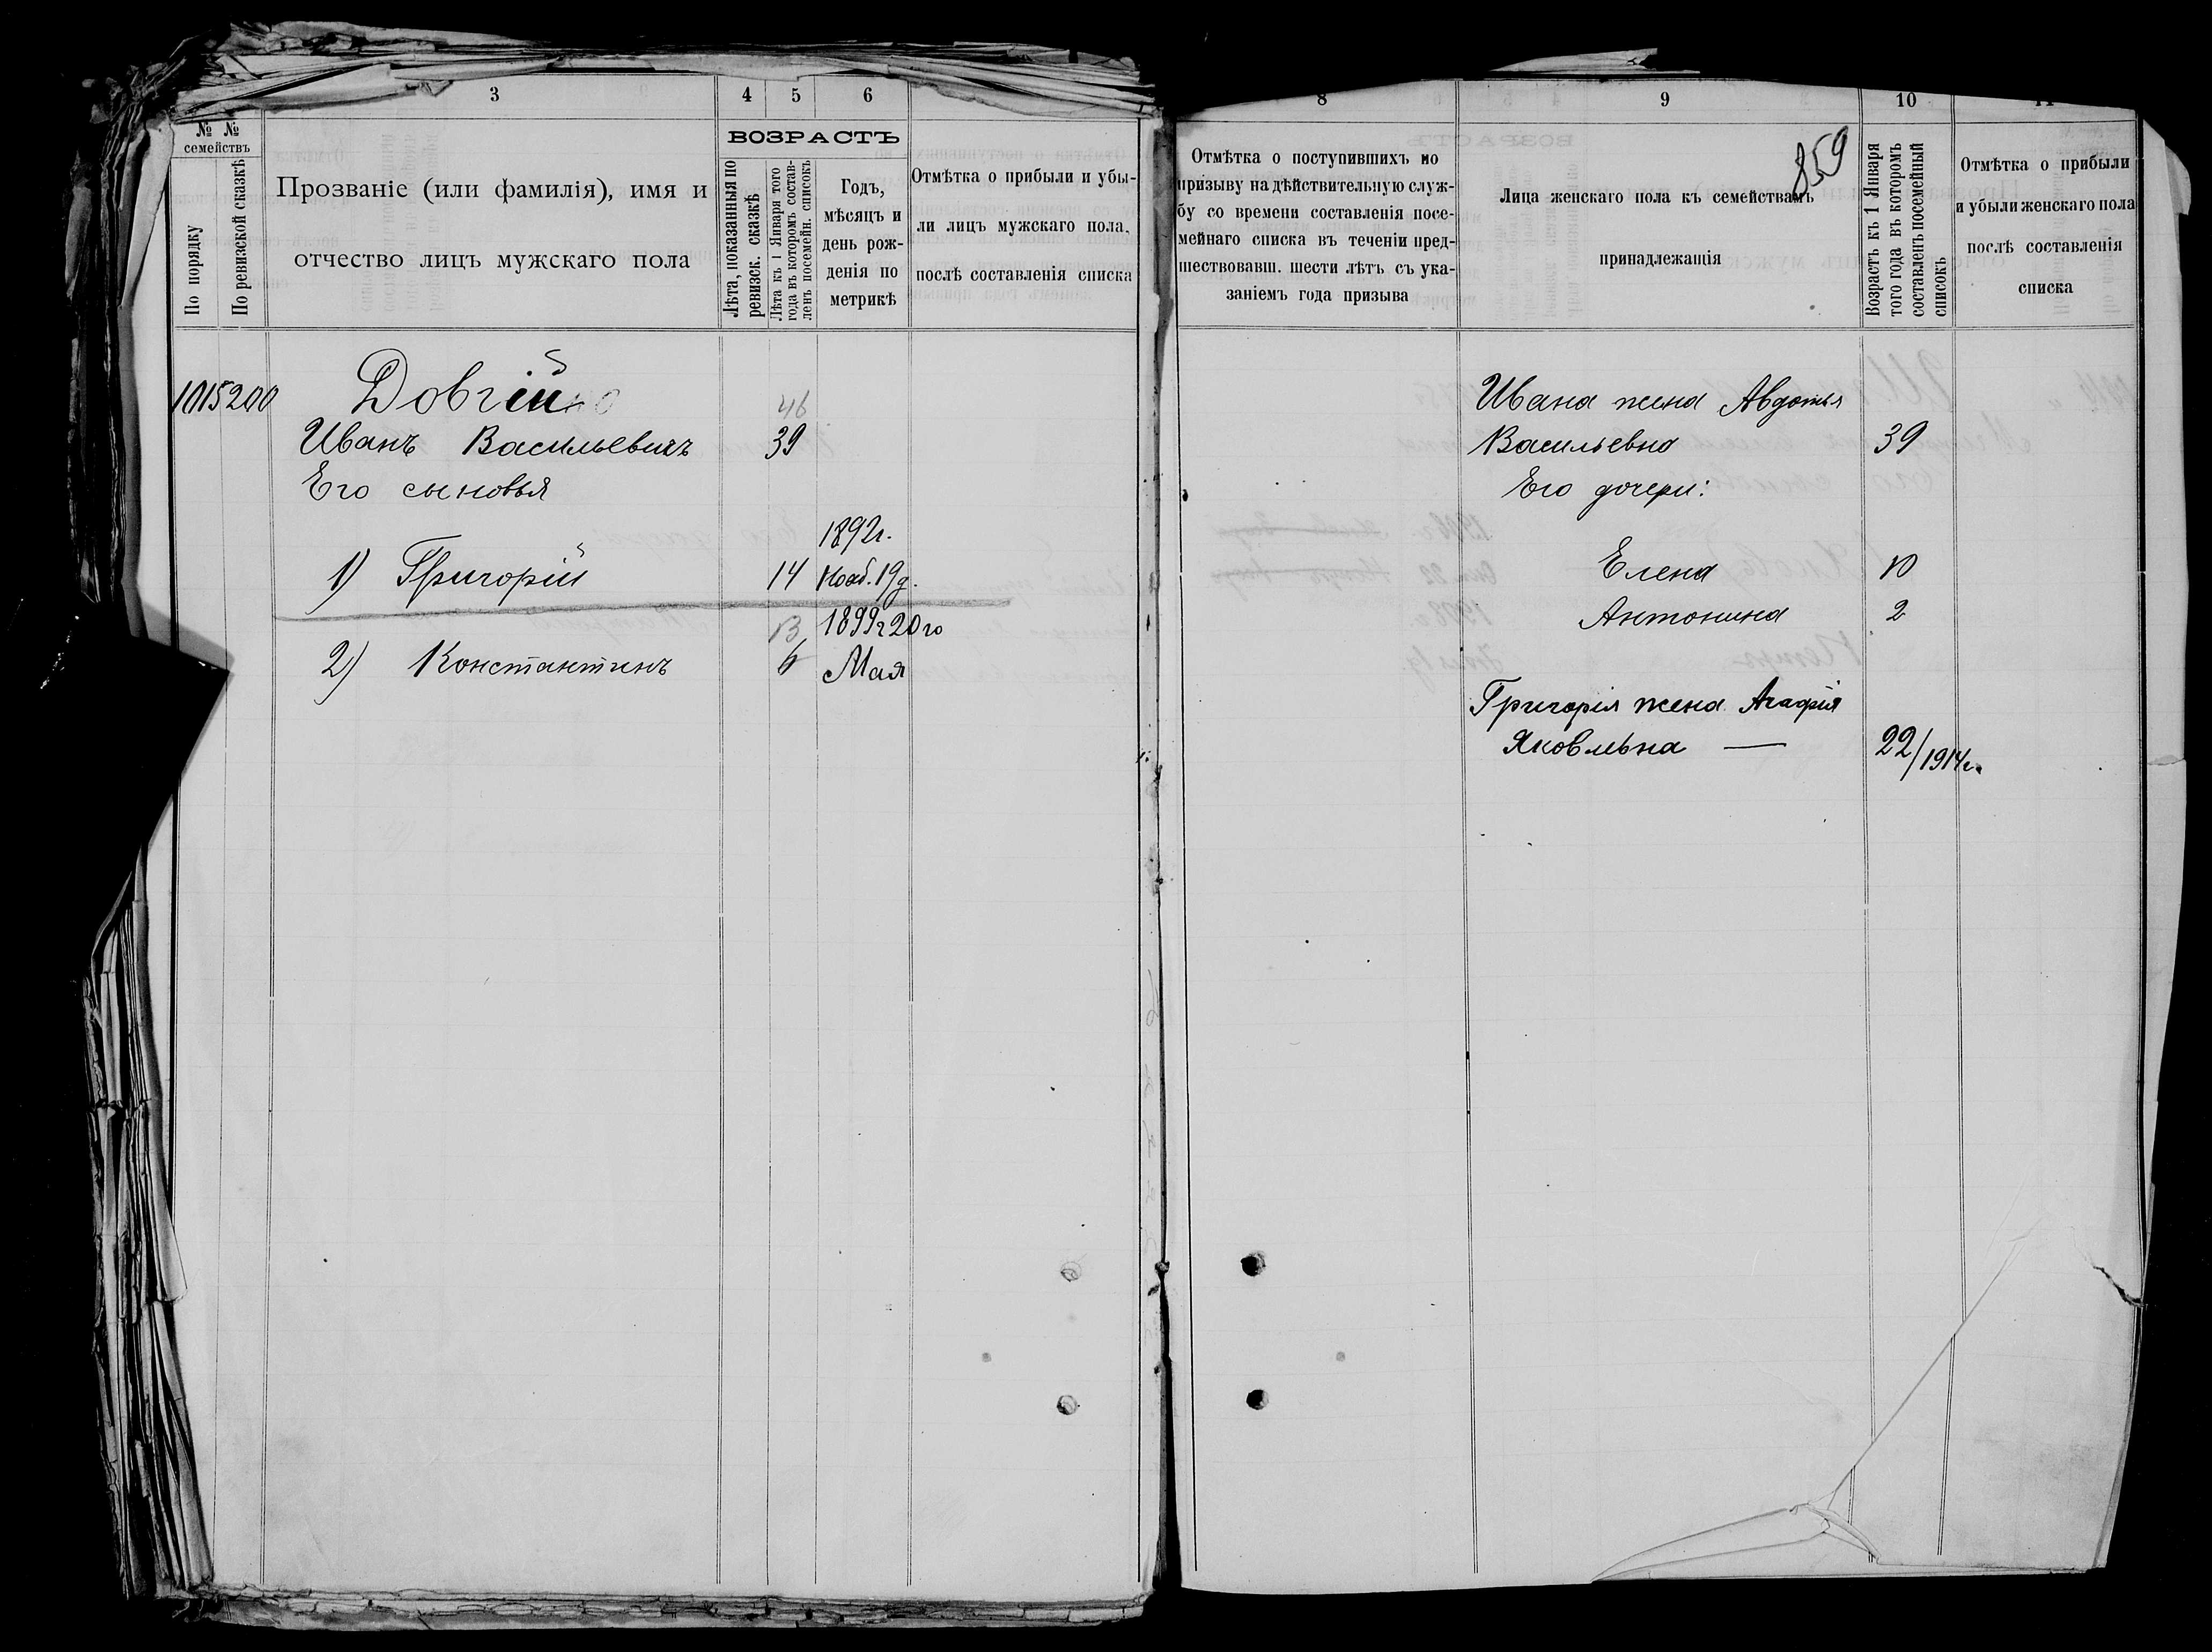 3
4
5
6
№ №
семействъ
По порядку
По ревизской сказкѣ
Прозваніе (или фамилія), имя и
отчество лицъ мужскаго пола
ВОЗРАСТЪ
Лѣта, показанныя по
ревизск. сказкѣ
Лѣта къ 1 Января того
года въ которомъ состав-
ленъ посемейн. списокъ
Годъ,
мѣсяцъ и
день рож-
денія по
метрикѣ
Отмѣтка о прибыли и убы-
ли лицъ мужскаго пола,
послѣ составленія списка
1015 200
Довгій
46
Иванъ Васильевичъ 39
Его сыновья
1892г.
1) Григорій 14 Нояб. 19д.
13 1899г 20го
2) Константинъ 6 Мая
8
9
10
11
Отмѣтка о поступившихъ по
призыву на дѣйствительную служ-
бу со времени составленія посе-
мейнаго списка въ теченіи пред-
шествовавш. шести лѣтъ съ ука-
заніемъ года призыва
859
Лица женскаго пола къ семействамъ
принадлежащія
Возрастъ къ 1 Января
того года въ которомъ
составленъ посемейный
списокъ
Отмѣтка о прибыли
и убыли женскаго пола
послѣ составленія
списка
Ивана жена Авдотья
Васильевна 39
Его дочери:
Елена 10
Антонина 2
Григорія жена Агафія
Яковлевна — 22/1914г.